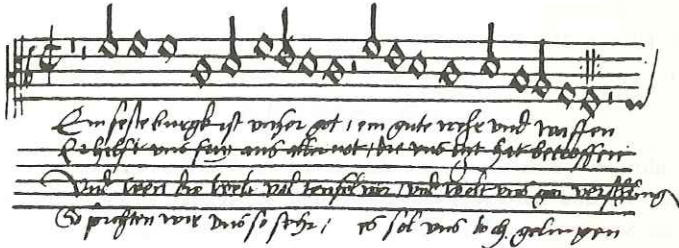 Ein feste burgk ist unser got, ein gute wehr und waffen
Er hilfft uns frey aus aller not, die uns hat betroffen
Und wen die welt vol teufel wer, und wolt uns gar
So furchten wir uns so sehr, es sol uns doch gelingen